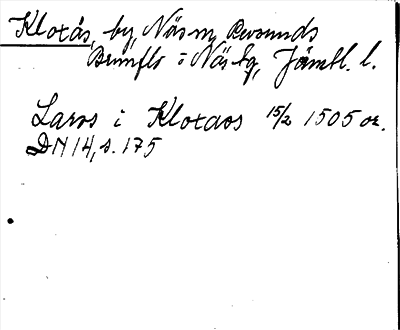 Kloxås, by, Näs sn, Revsunds
Brunflo i Näs tg, Jämtl. l.
Laros i Kloxaos 15/2 1505 or.
DN 14, s. 175